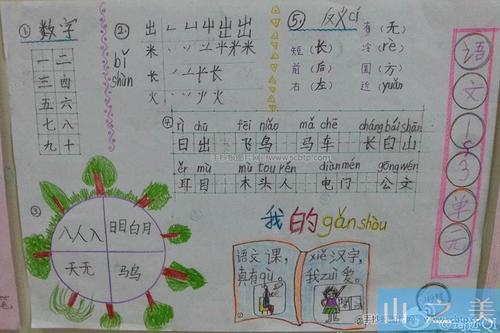 ① 数字
一 二
三 四
五 六
七 八
九 十
② 笔顺
bǐ
shùn
出
出出
米
米米米
长
长长
火
火
⑤ 反义cí
有 (无)
短 (长) 冷 (rè)
前 (后) 圆 (方)
右 (左) 近 (yuǎn)
④
rì chū fēi niǎo mǎ chē cháng bái shān
日出 飞鸟 马车 长白山
ěr mù mù tou rén diàn mén gōng wén
耳目 木头人 电门 公文
③
八人入
日目白月
天无
马鸟
我的gǎn shòu
语文课,
真有qù。
xiě汉字,
我zuì爱。
语文1~3单元
山之美